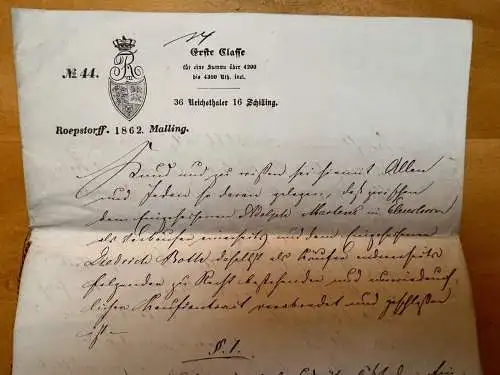 17
Erste Classe
für eine Summe über 4200
bis 4300 Rth. incl.
№ 44.
36 Reichsthaler 16 Schilling.
Roepstorff. 1862. Malling.
Kund und zu wissen sei hiemit Allen
und Jeden so daran gelegen, daß zwischen
dem Eingesessenen Marten in
als Verkäufer einerseits und dem Eingesessenen
Diedrich Bolle daselbst als Käufer andererseits
folgender zu Recht bestehender und unwiederruf-
licher Kaufcontract verabredet und geschlossen
ist
§. 1.